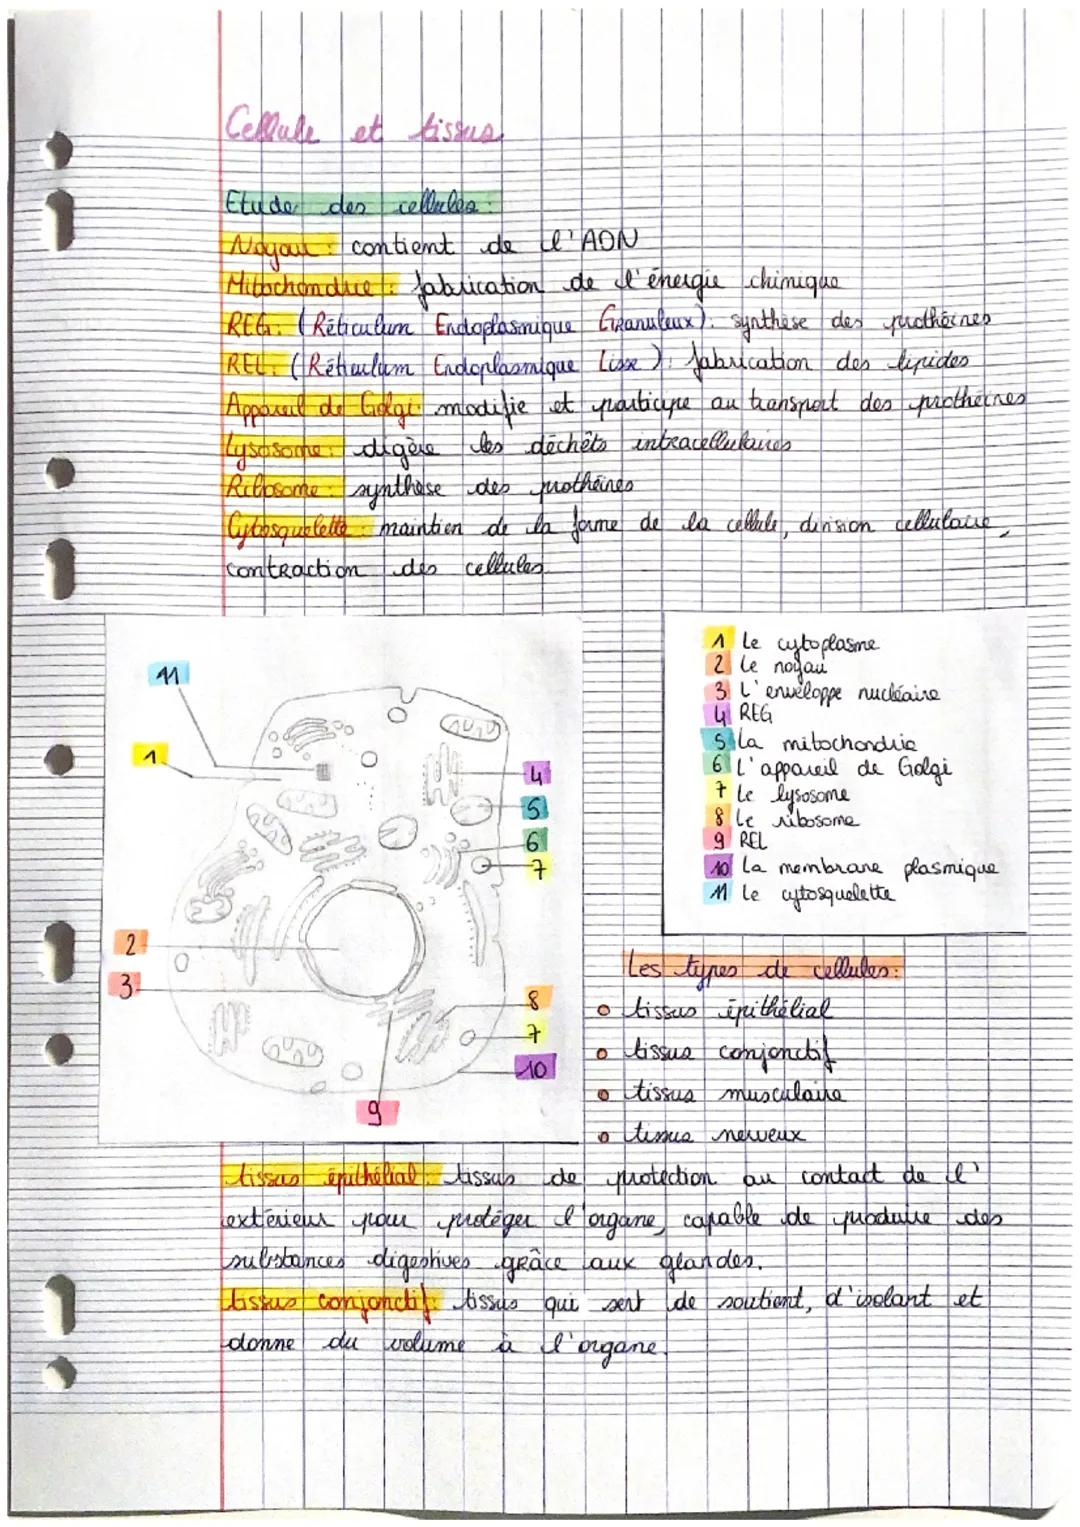 Cellule et tissus
Etude des cellules :
Noyau : contient de l'ADN
Mitochondrie : fabrication de l'énergie chimique
REG : (Réticulum Endoplasmique GRanuleux) : synthèse des prothéines
REL : (Réticulum Endoplasmique Lisse) : fabrication des lipides
Appareil de Golgi : modifie et participe au transport des prothéines
Lysosome : digère les déchêts intracellulaires
Ribosome : synthèse des prothéines
Cytosquelette : maintien de la forme de la cellule, division cellulaire,
contraction des cellules
11
1
4
5
6
7
2
3
8
7
10
9
1 Le cytoplasme
2 Le noyau
3 L'enveloppe nucléaire
4 REG
5 La mitochondrie
6 L'appareil de Golgi
7 Le lysosome
8 Le ribosome
9 REL
10 La membrane plasmique
11 Le cytosquelette
Les types de cellules :
tissus épithélial
tissus conjonctif
tissus musculaire
tissus nerveux
tissus épithélial : tissus de protection au contact de l'
extérieur pour protéger l'organe, capable de produire des
substances digestives grâce aux glandes.
tissus conjonctif : tissus qui sert de soutient, d'isolant et
donne du volume à l'organe.